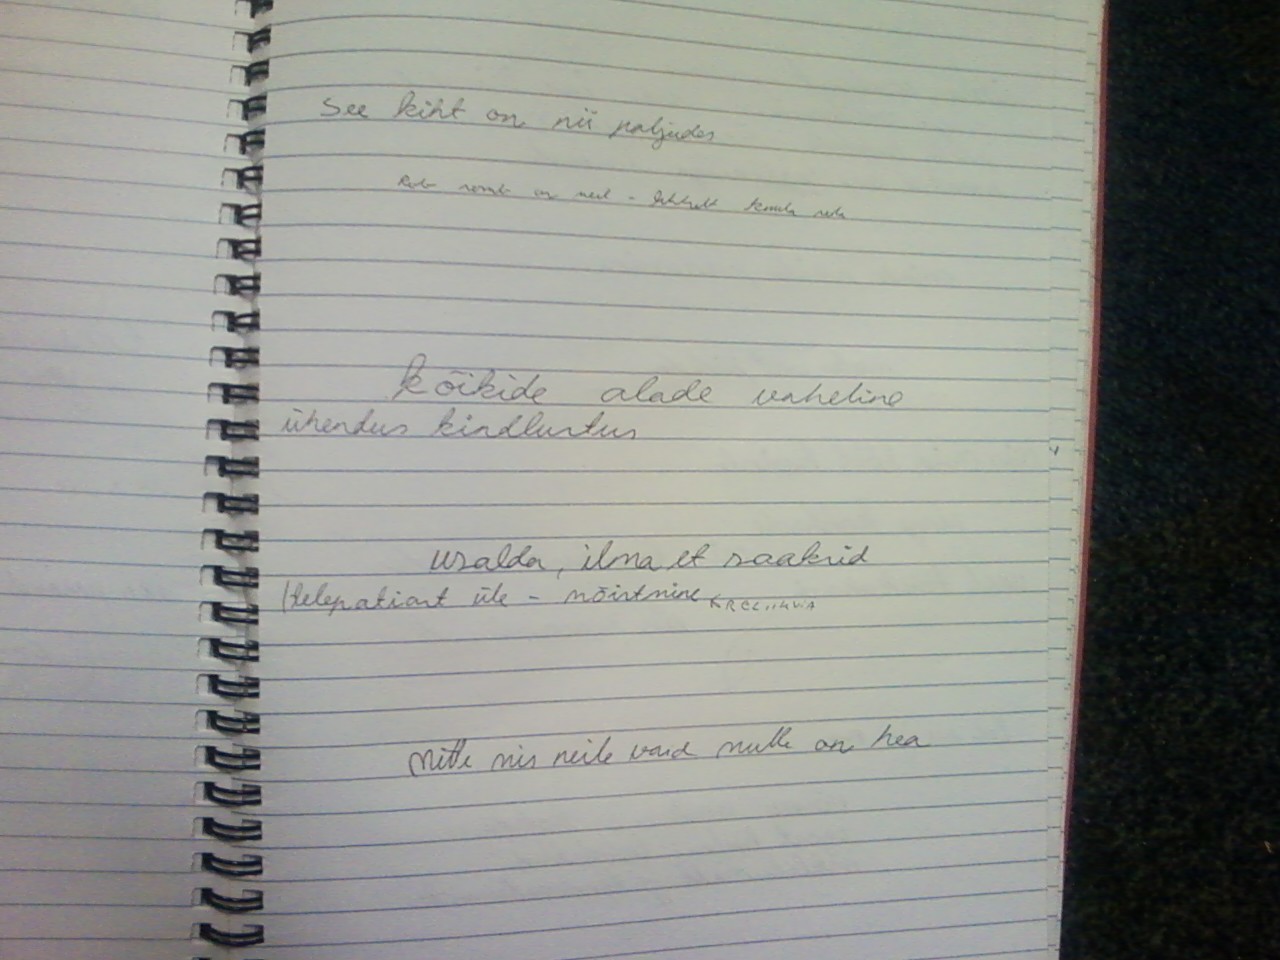 See kiht on nii paljudes
on neil -
kõikide alade vaheline
ühendus kindlustus
usalda, ilma et saaksid
telepatiast üle - mõistmine
Mitte mis neile vaid mulle on hea